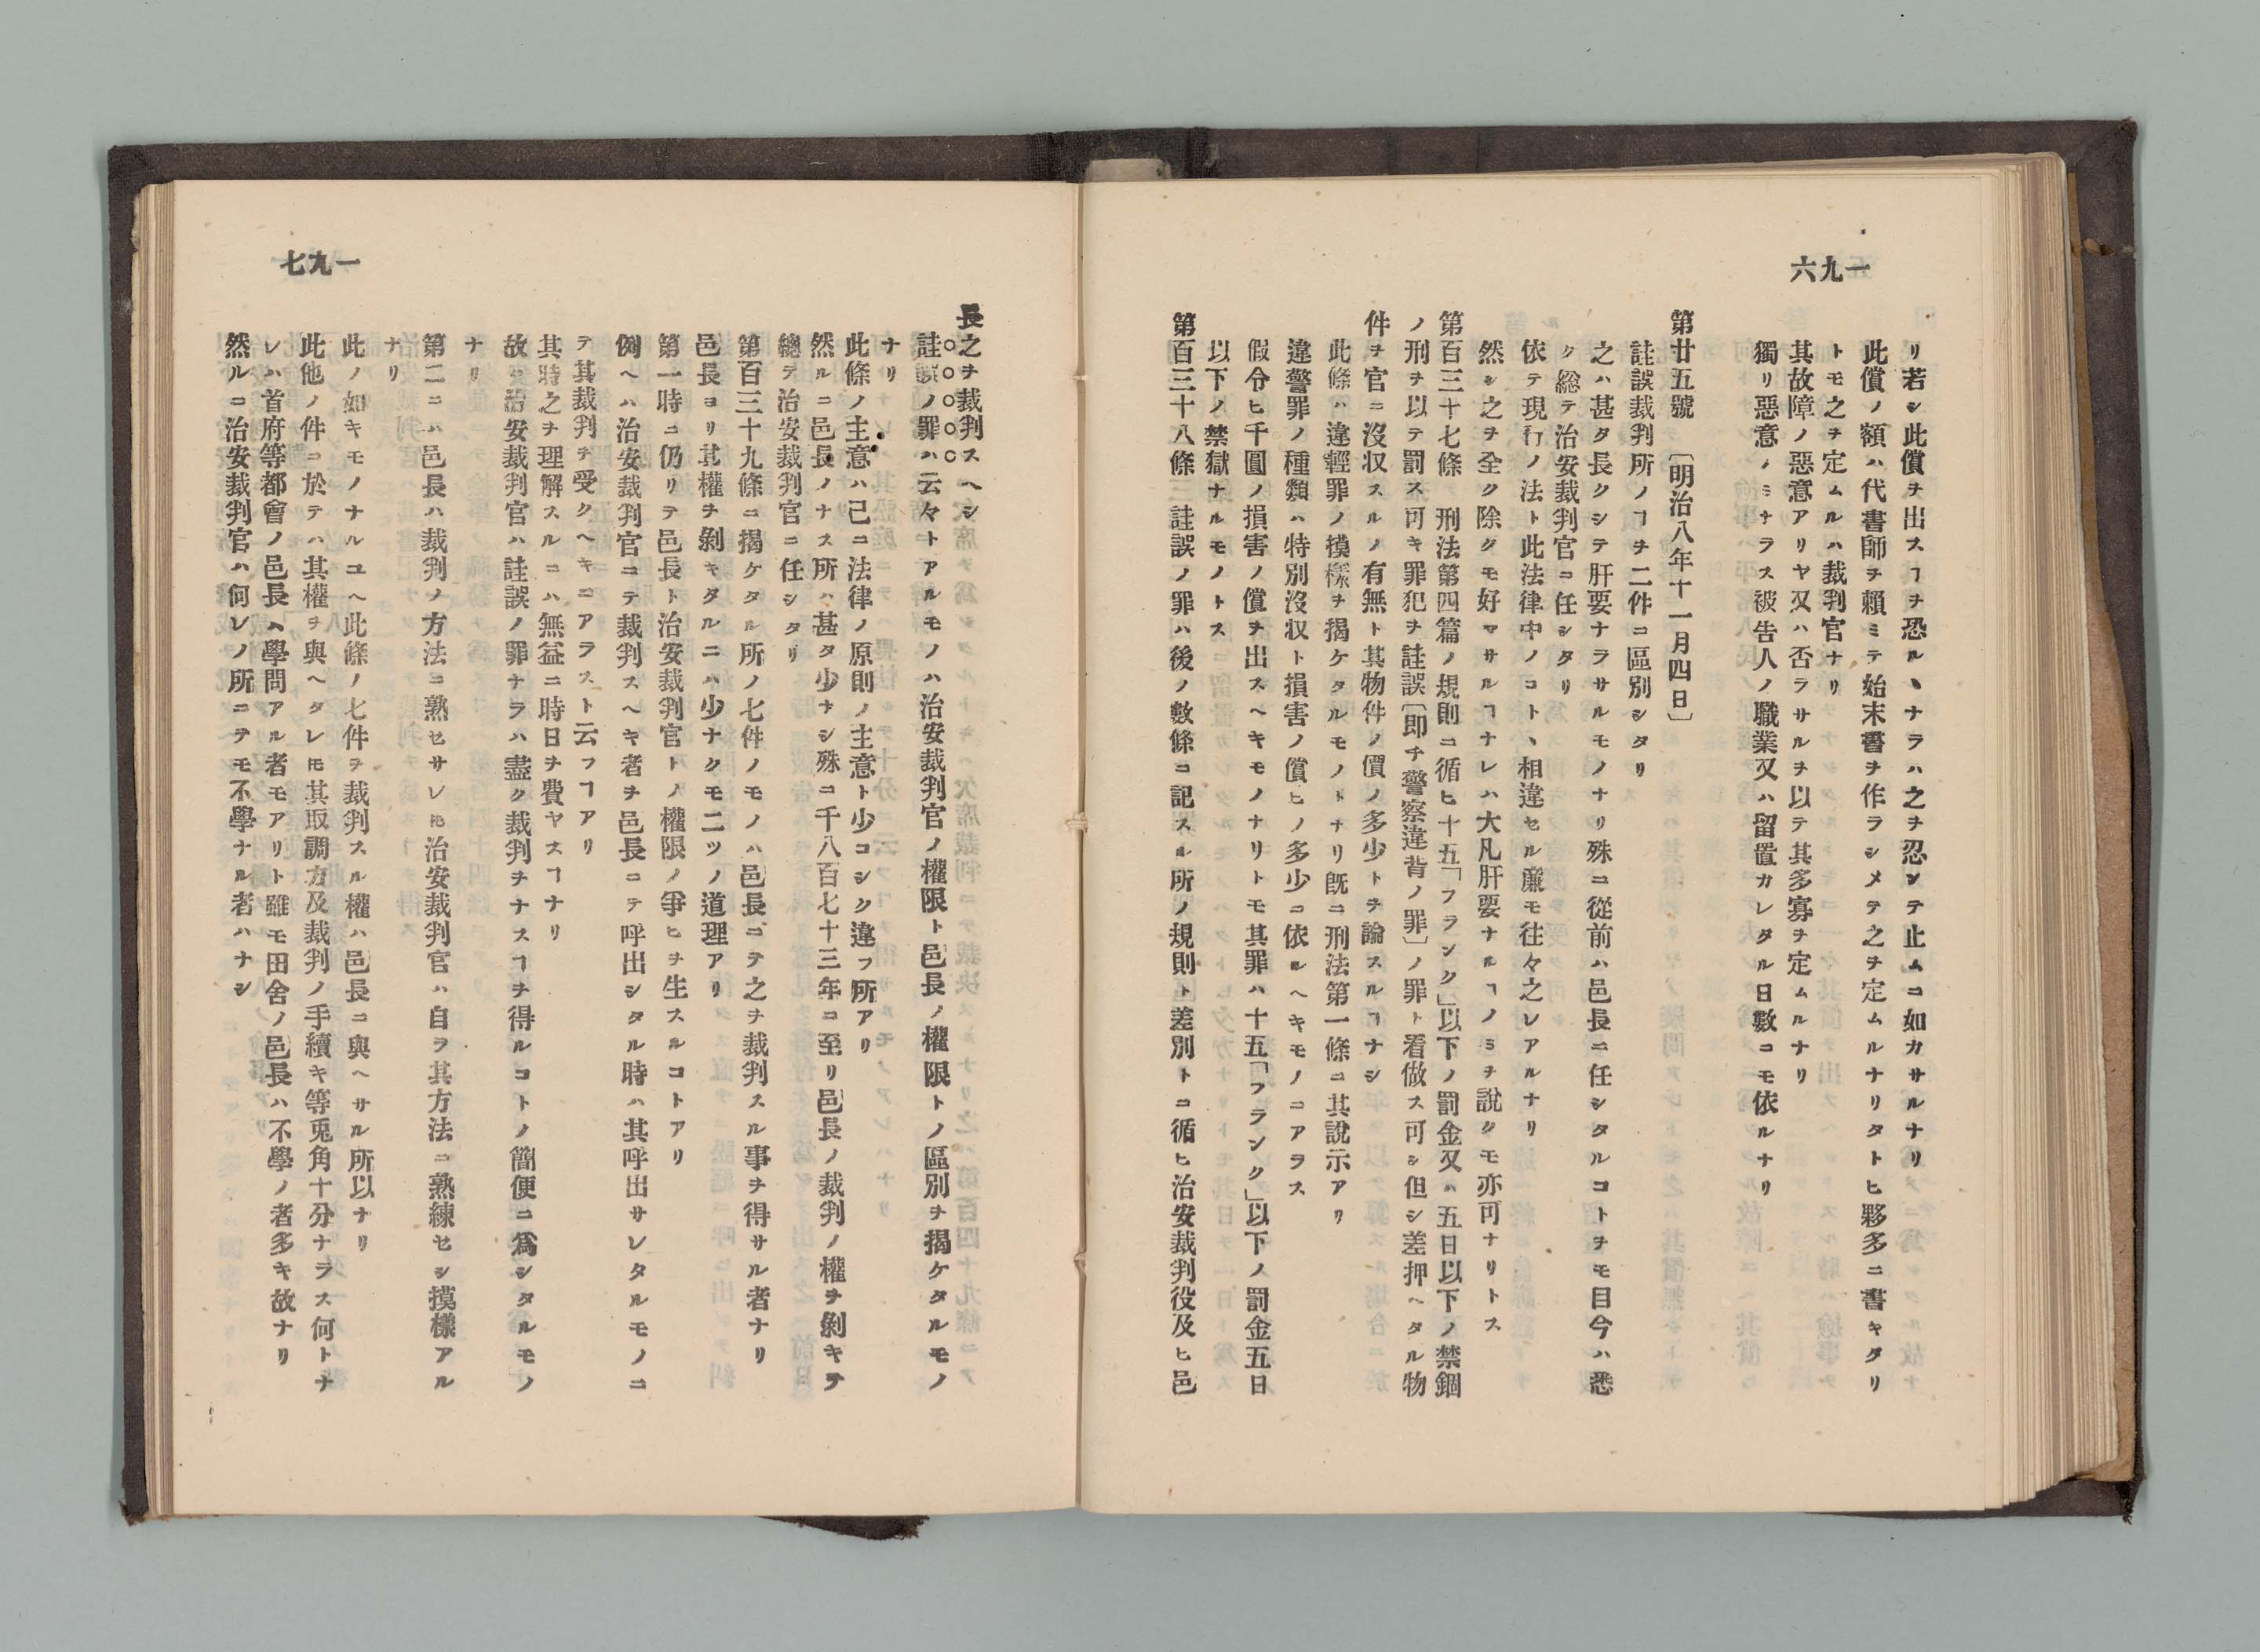 一九六
リ若シ此償ヲ出スヿヲ恐ルヽナラハ之ヲ忍ンテ止ムニ如カサルナリ
此償ノ額ハ代書師ヲ頼ミテ始末書ヲ作ラシメテ之ヲ定ムルナリタトヒ夥多ニ書キタリ
トモ之ヲ定ムルハ裁判官ナリ
其故障ノ惡意アリヤ又ハ否ラサルヲ以テ其多寡ヲ定ムルナリ
獨リ惡意ノミナラス被告人ノ職業又ハ留置カレタル日數ニモ依ルナリ
第廿五號 〔明治八年十一月四日〕
註誤裁判所ノヿヲ二件ニ區別シタリ
之ハ甚タ長クシテ肝要ナラサルモノナリ殊ニ從前ハ邑長ニ任シタルコトヲモ目今ハ悉
ク総テ治安裁判官ニ任シタリ
依テ現行ノ法ト此法律中ノコトヽ相違セル廉モ往々之レアルナリ
然シ之ヲ全ク除クモ好マサルヿナレハ大凡肝要ナルヿノミヲ說クモ亦可ナリトス
第百三十七條 刑法第四篇ノ規則ニ循ヒ十五「フランク」以下ノ罰金又ハ五日以下ノ禁錮
ノ刑ヲ以テ罰ス可キ罪犯ヲ註誤〔即チ警察違背ノ罪〕ノ罪ト看做ス可シ但シ差押ヘタル物
件ヲ官ニ沒収スルノ有無ト其物件ノ價ノ多少トヲ論スルヿナシ
此條ハ違輕罪ノ摸樣ヲ揭ケタルモノトナリ旣ニ刑法第一條ニ其說示アリ
違警罪ノ種類ハ特別沒収ト損害ノ償ヒノ多少ニ依ルヘキモノニアラス
假令ヒ千圓ノ損害ノ償ヲ出スヘキモノナリトモ其罪ハ十五「フランク」以下ノ罰金五日
以下ノ禁獄ナルモノトス
第百三十八條 註誤ノ罪ハ後ノ數條ニ記スル所ノ規則ト差別トニ循ヒ治安裁判役及ヒ邑
一九七
長之ヲ裁判スヘシ
註誤ノ罪ハ云々トアルモノハ治安裁判官ノ權限ト邑長ノ權限トノ區別ヲ揭ケタルモノ
ナリ
此條ノ主意ハ已ニ法律ノ原則ノ主意ト少コシク違フ所アリ
然ルニ邑長ノナス所ハ甚タ少ナシ殊ニ千八百七十三年ニ至リ邑長ノ裁判ノ權ヲ剝キテ
總テ治安裁判官ニ任シタリ
第百三十九條ニ揭ケタル所ノ七件ノモノハ邑長ニテ之ヲ裁判スル事ヲ得サル者ナリ
邑長ヨリ其權ヲ剝キタルニハ少ナクモ二ツノ道理アリ
第一時ニ仍リテ邑長ト治安裁判官トノ權限ノ爭ヒヲ生スルコトアリ
例ヘハ治安裁判官ニテ裁判スヘキ者ヲ邑長ニテ呼出シタル時ハ其呼出サレタルモノニ
テ其裁判ヲ受クヘキニアラスト云フヿアリ
其時之ヲ理解スルニハ無益ニ時日ヲ費ヤスヿナリ
故ニ治安裁判官ハ註誤ノ罪ナラハ盡ク裁判ヲナスヿヲ得ルコトノ簡便ニ爲シタルモノ
ナリ
第二ニハ邑長ハ裁判ノ方法ニ熟セサレ𪜈治安裁判官ハ自ラ其方法ニ熟練セシ摸樣アル
ナリ
此ノ如キモノナルユヘ此條ノ七件ヲ裁判スル權ハ邑長ニ與ヘサル所以ナリ
此他ノ件ニ於テハ其權ヲ與ヘタレ𪜈其取調方及裁判ノ手續キ等兎角十分ナラス何トナ
レハ首府等都會ノ邑長ハ學問アル者モアリト雖モ田舍ノ邑長ハ不學ノ者多キ故ナリ
然ルニ治安裁判官ハ何レノ所ニテモ不學ナル者ハナシ